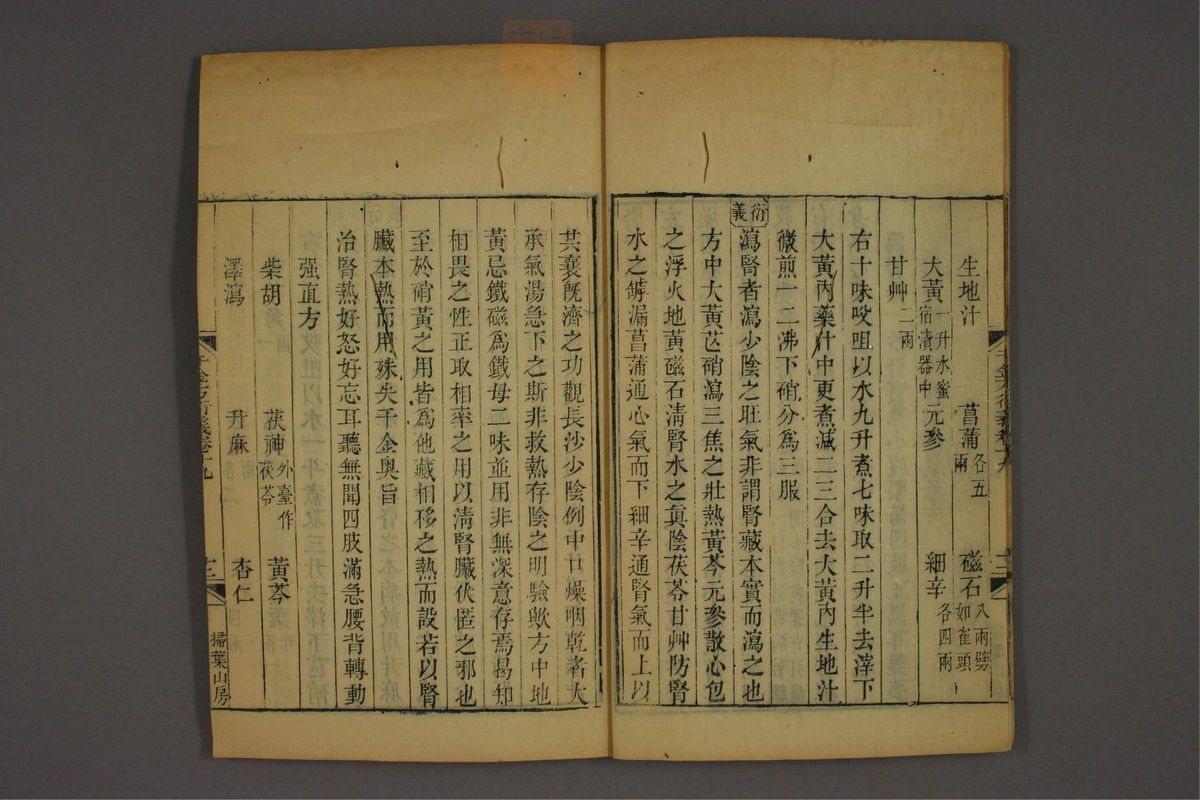 生地汁　菖蒲各五兩　磁石八兩劈如雀頭
大黃一升水蜜宿漬器中　元參　細辛各四兩
甘艸二兩
右十味㕮咀以水九升煮七味取二升半去滓下
大黃內藥汁中更煮減二三合去大黃內生地汁
微煎一二沸下硝分爲三服
衍義
瀉腎者瀉少陰之壯氣非謂腎藏本實而瀉之也
方中大黃芒硝瀉三焦之壯熱黃芩元參散心包
之浮火地黃磁石淸腎水之眞陰茯苓甘艸防腎
水之罅漏菖蒲通心氣而下細辛通腎氣而上以
千金方衍義卷十九
共襄旣濟之功觀長沙少陰例中口燥咽乾者大
承氣湯急下之斯非救熱存陰之明驗歟方中地
黃忌鐵磁爲鐵母二味並用非無深意存焉曷知
相畏之性正取相率之用以淸腎臟伏匿之邪也
至於硝黃之用皆爲他藏相移之熱而設若以腎
臟本熱而用殊失千金奧旨
治腎熱好怒好忘耳聽無聞四肢滿急腰背轉動
强直方
柴胡　茯神外臺作茯苓　黃芩
澤瀉　升麻　杏仁
千金方衍義卷十九　十二　掃葉山房